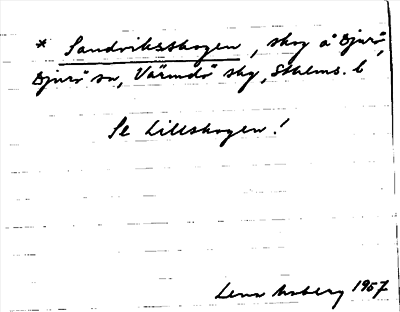 * Sandviksskogen, skog å Djurö,
Djurö sn, Värmdö skg, Sthlms. l
Se Lillskogen!
Lena Moberg 1957